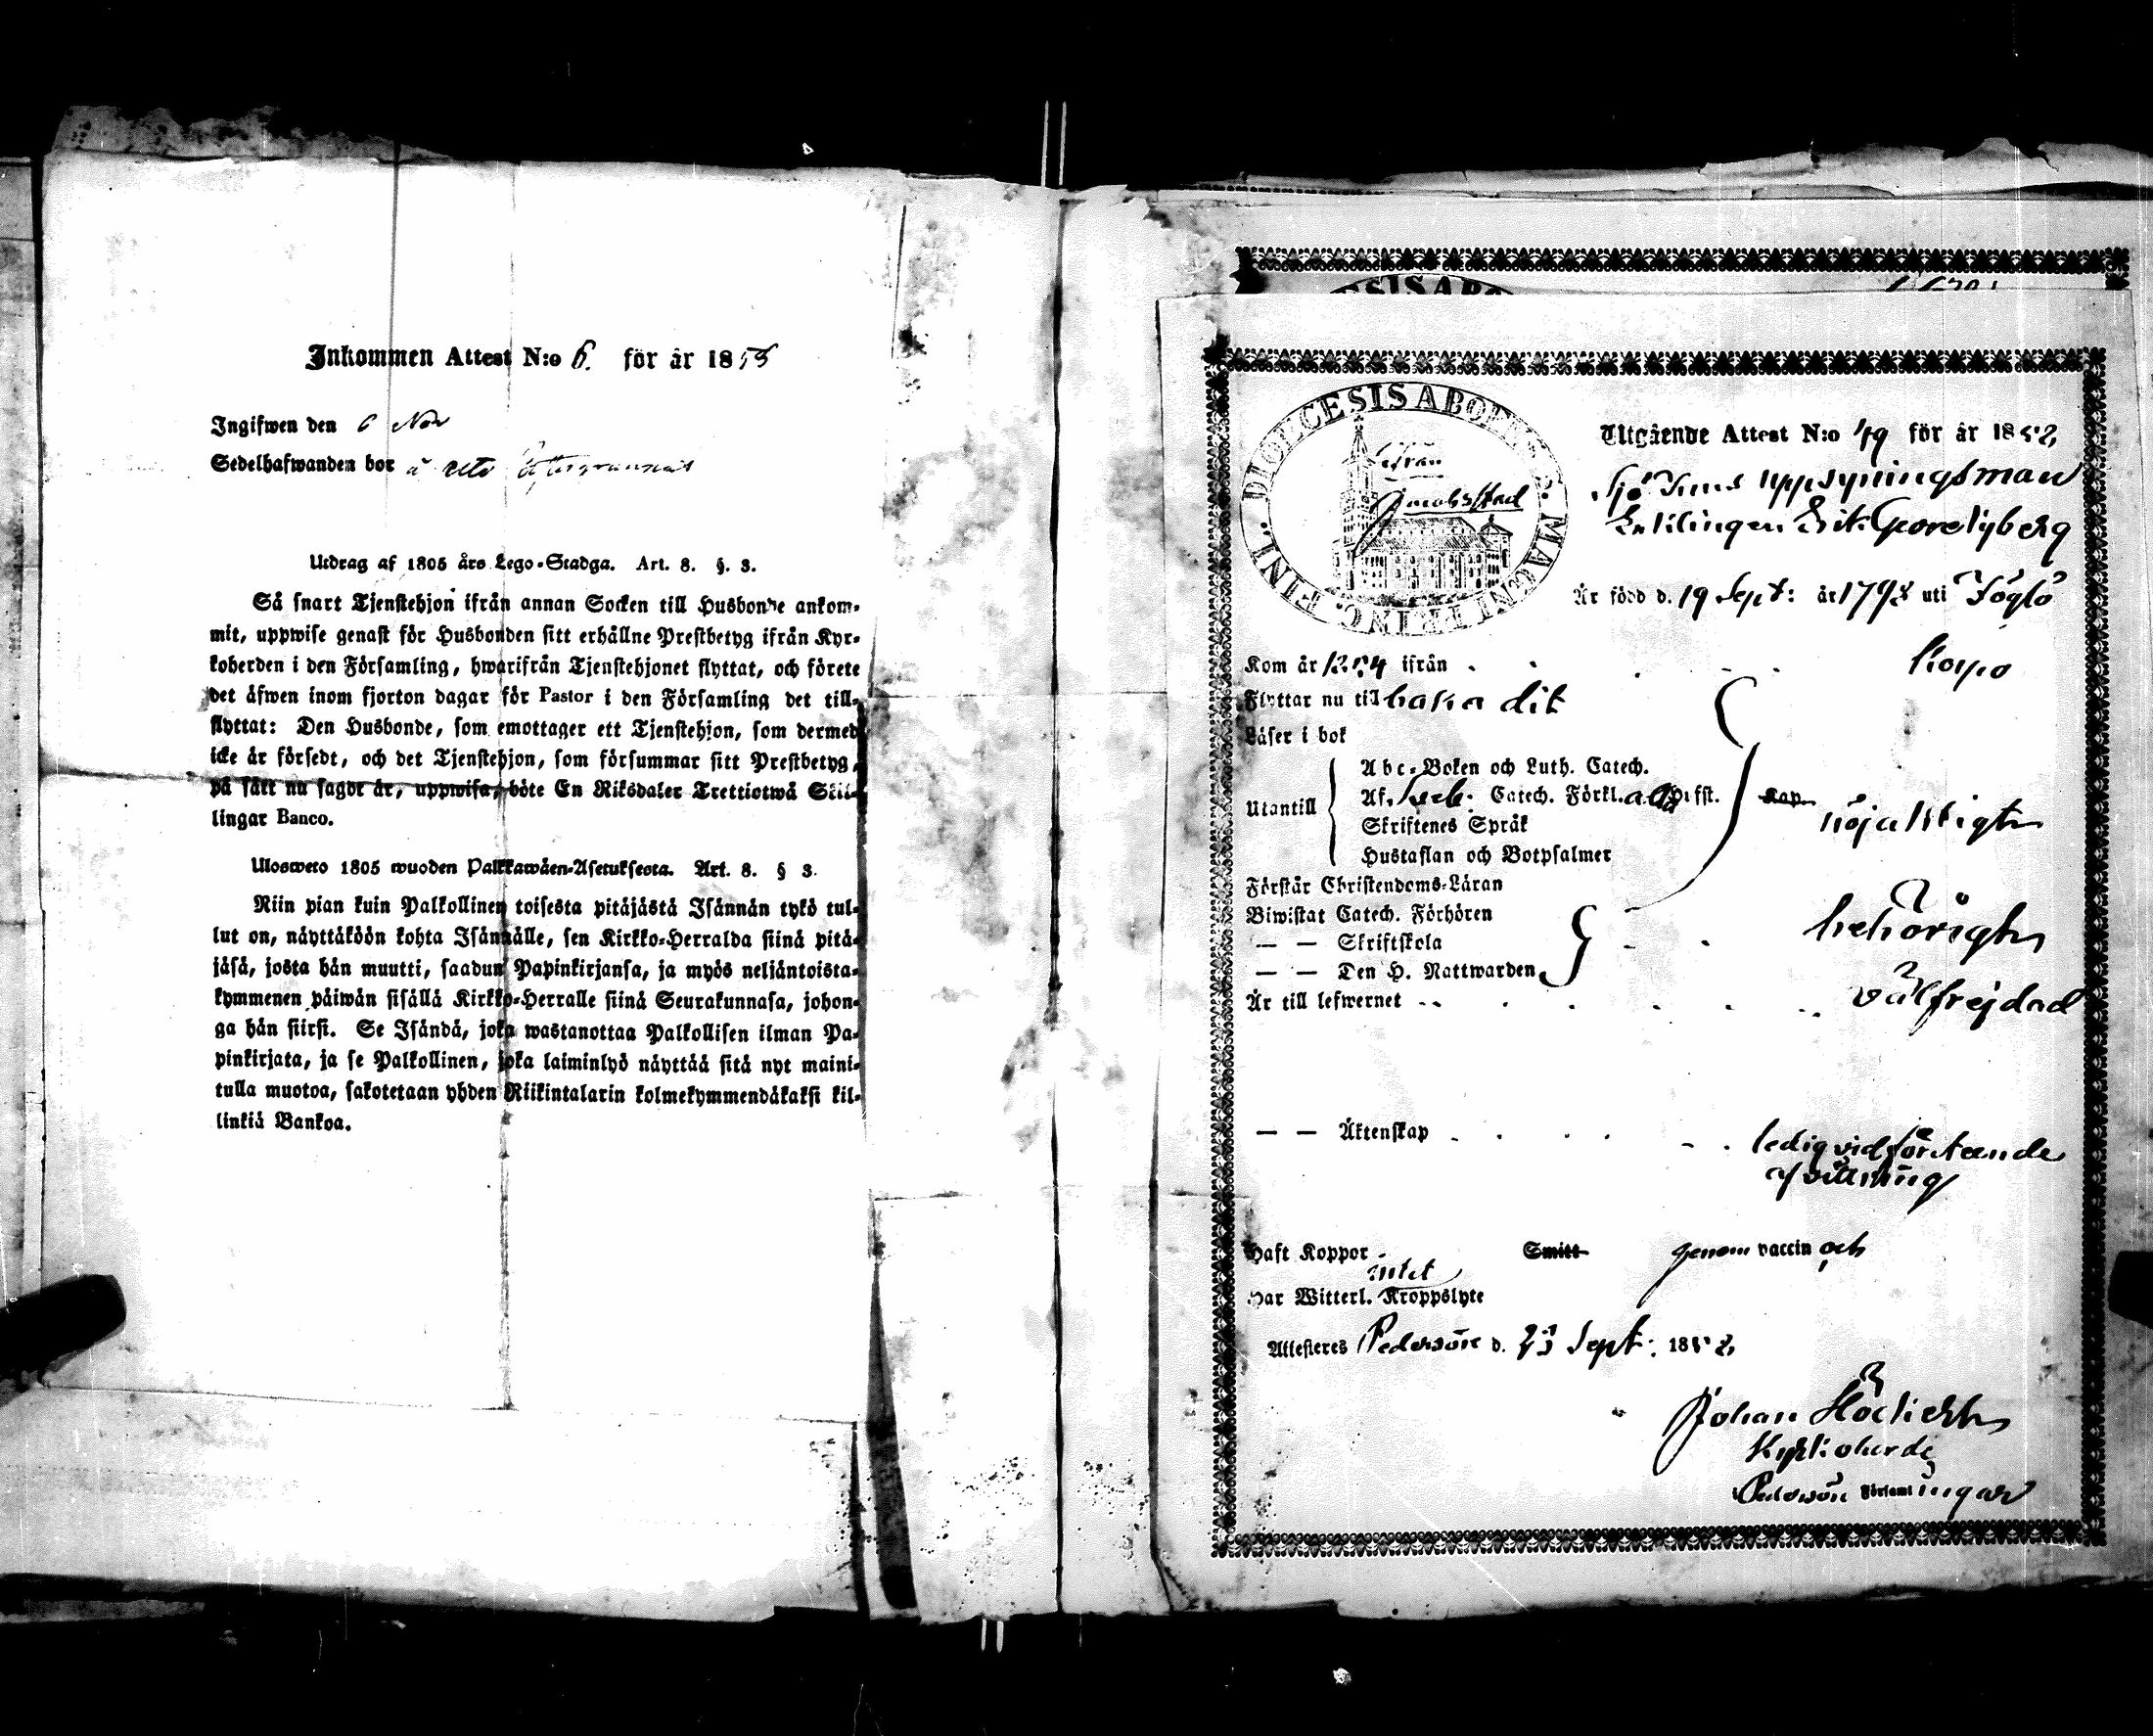 Inkommen Attest N:o 6. för år 1855
Ingifwen den 6 Nov
Sedelhafwanden bor å
Utdrag af 1805 års Lego-Stadga. Art. 8. §. 3.
Så snart Tjenstehjon ifrån annan Socken till Husbonde ankom-
mit, uppwise genast för Husbonden sitt erhållne Prestbetyg ifrån Kyr-
koherden i den Församling, hwarifrån Tjenstehjonet flyttat, och förete
det äfwen inom fjorton dagar för Pastor i den Församling det till-
flyttat: Den Husbonde, som emottager ett Tjenstehjon, som dermed
icke är försedt, och det Tjenstehjon, som försummar sitt Prestbetyg,
på sätt nu sagdt är, uppwisa, böte En Riksdaler Trettiotwå Skil-
lingar Banco.
Ulosweto 1805 wuoden Palkkawäen-Asetuksesta. Art. 8. § 3.
Niin pian kuin Palkollinen toisesta pitäjästä Isännän tykö tul-
lut on, näyttäköön kohta Isännälle, sen Kirkko-Herralda siinä pitä-
jäsä, josta hän muutti, saadun Papinkirjansa, ja myös neljäntoista-
kymmenen päiwän sisällä Kirkko-Herralle siinä Seurakunnasa, johon-
ga hän siirsi. Se Isändä, joka wastanottaa Palkollisen ilman Pa-
pinkirjata, ja se Palkollinen, joka laiminlyö näyttää sitä nyt maini-
tulla muotoa, sakotetaan yhden Riikintalarin kolmekymmendäkaksi kil-
linkiä Bankoa.
DIOECESIS ABOENS. MAGNI PRINC. FINL.
ifrån
Jacobsstad
Utgående Attest N:o 49 för år 1852
Sjö Tulls uppsyningsman
Enklingen Erik Gore Nyberg
Är född d. 19 Sept: år 1798 uti Föglö
Kom år ifrån Korpo
Flyttar nu till baka dit
Läser i bok
Abc-Boken och Luth. Catech.
Utantill Af Sveb. Catech. Förkl. alla Hufst. Kap. nöjaktigt
Skriftenes Språk
Hustaflan och Botpsalmer
Förstår Christendoms-Läran
Biwistat Catech. Förhören
— — Skriftskola behörigt
— — Den H. Nattwarden
Är till lefwernet välfrejdad
— — Äktenskap ledig vid förstående
afvittning
Haft Koppor Smitt genom vaccin och
intet
Har Witterl. Kroppslyte
Attesteres Pedersöre d. 23 Sept: 1852
Johan
Kyrkoherde
Pedersöre Församlingar